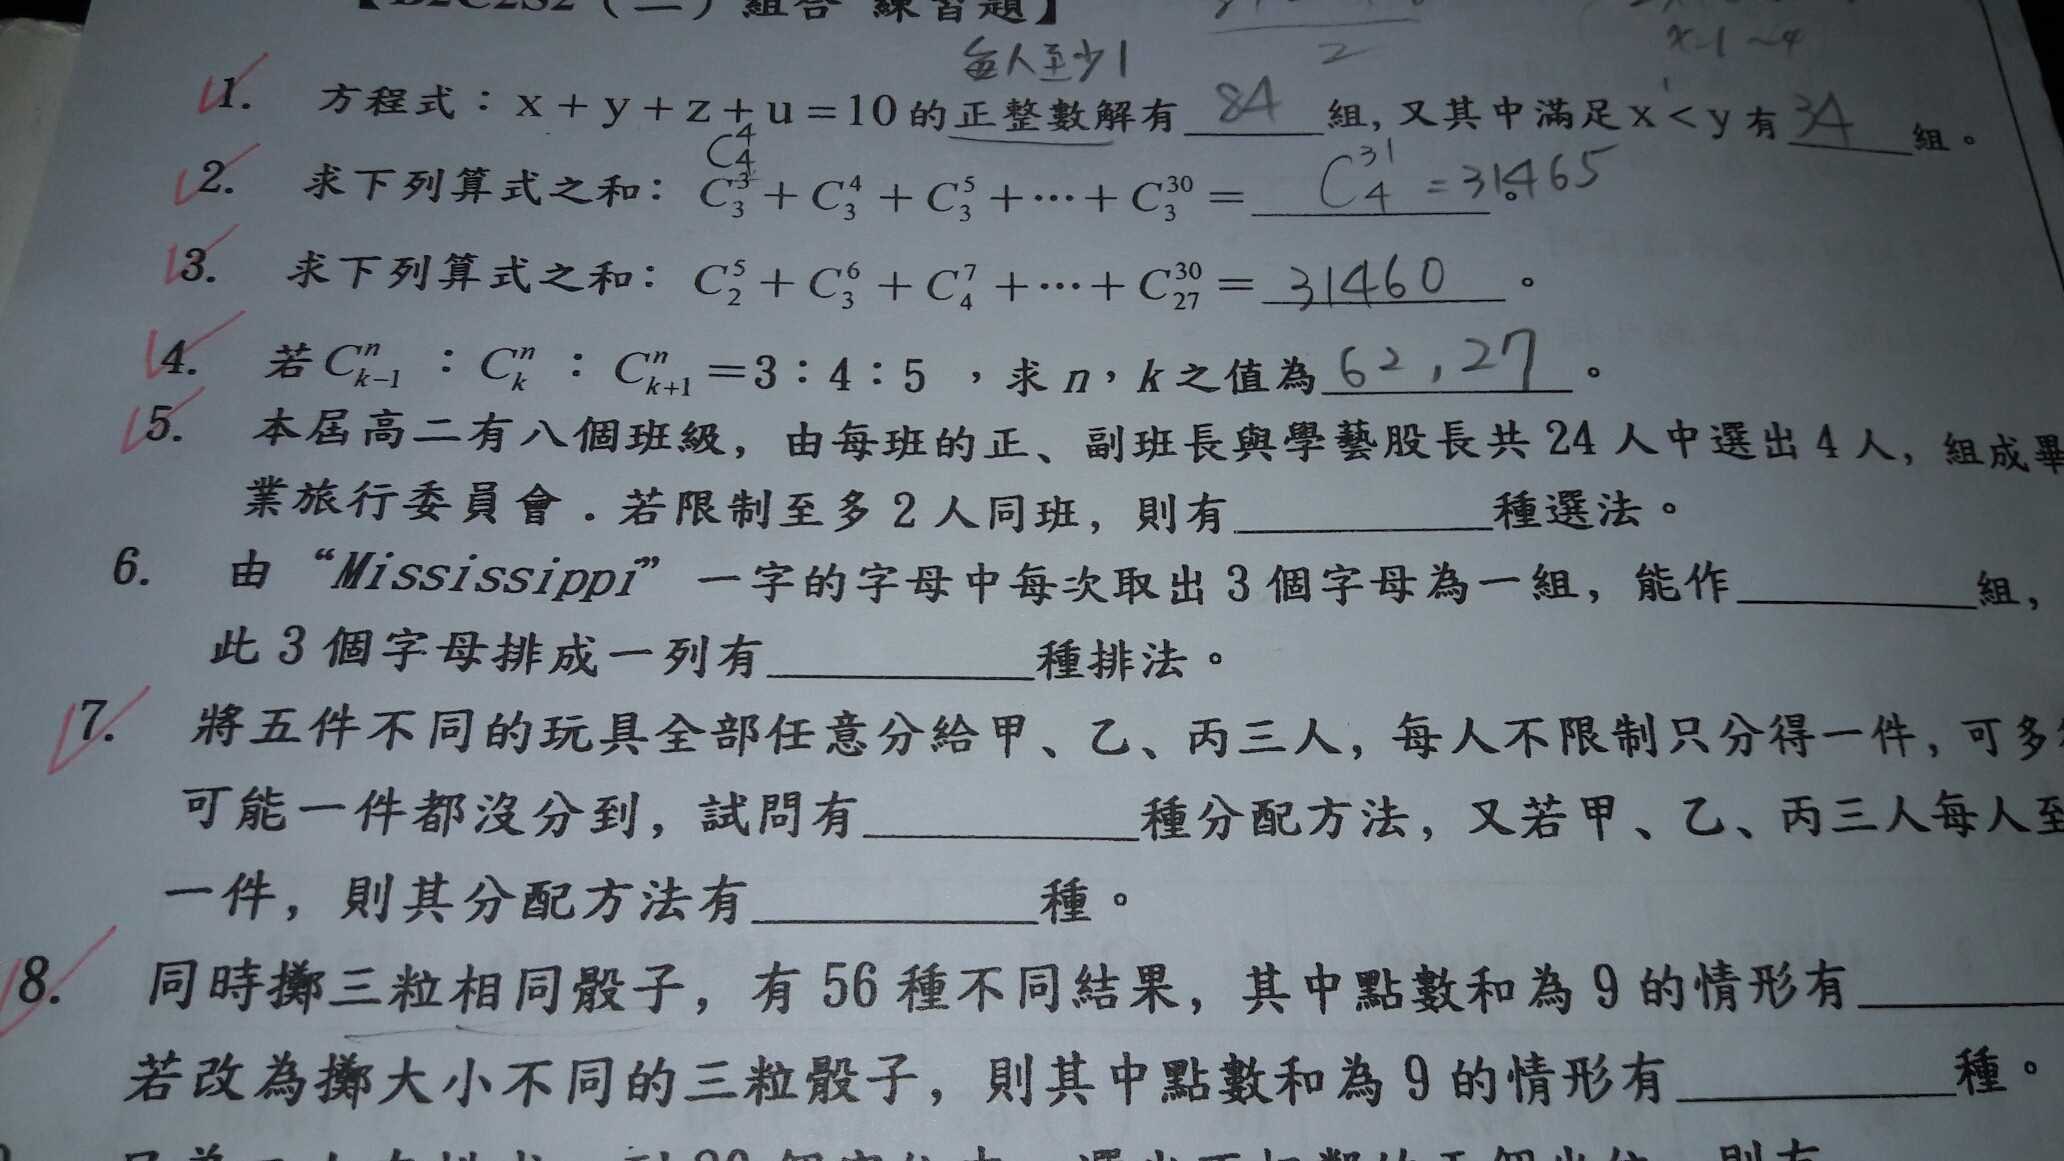 【B2C2S2（二）組合 練習題】
每人至少1
2
x=1~4
1. 方程式：x＋y＋z＋u＝10的正整數解有 84 組, 又其中滿足x＜y有 34 組。
C^4_4
2. 求下列算式之和: C^3_3＋C^4_3＋C^5_3＋…＋C^30_3＝ C^31_4 = 31465 。
3. 求下列算式之和: C^5_2＋C^6_3＋C^7_4＋…＋C^30_27＝ 31460 。
4. 若C^n_k−1：C^n_k：C^n_k+1＝3：4：5 ，求n，k之值為 62 , 27 。
5. 本屆高二有八個班級, 由每班的正、副班長與學藝股長共24人中選出4人, 組成畢
業旅行委員會．若限制至多2人同班, 則有________種選法。
6. 由“Mississippi”一字的字母中每次取出3個字母為一組, 能作________組,
此3個字母排成一列有________種排法。
7. 將五件不同的玩具全部任意分給甲、乙、丙三人, 每人不限制只分得一件, 可多
可能一件都沒分到, 試問有________種分配方法, 又若甲、乙、丙三人每人至
一件, 則其分配方法有________種。
8. 同時擲三粒相同骰子, 有56種不同結果, 其中點數和為9的情形有________
若改為擲大小不同的三粒骰子, 則其中點數和為9的情形有________種。